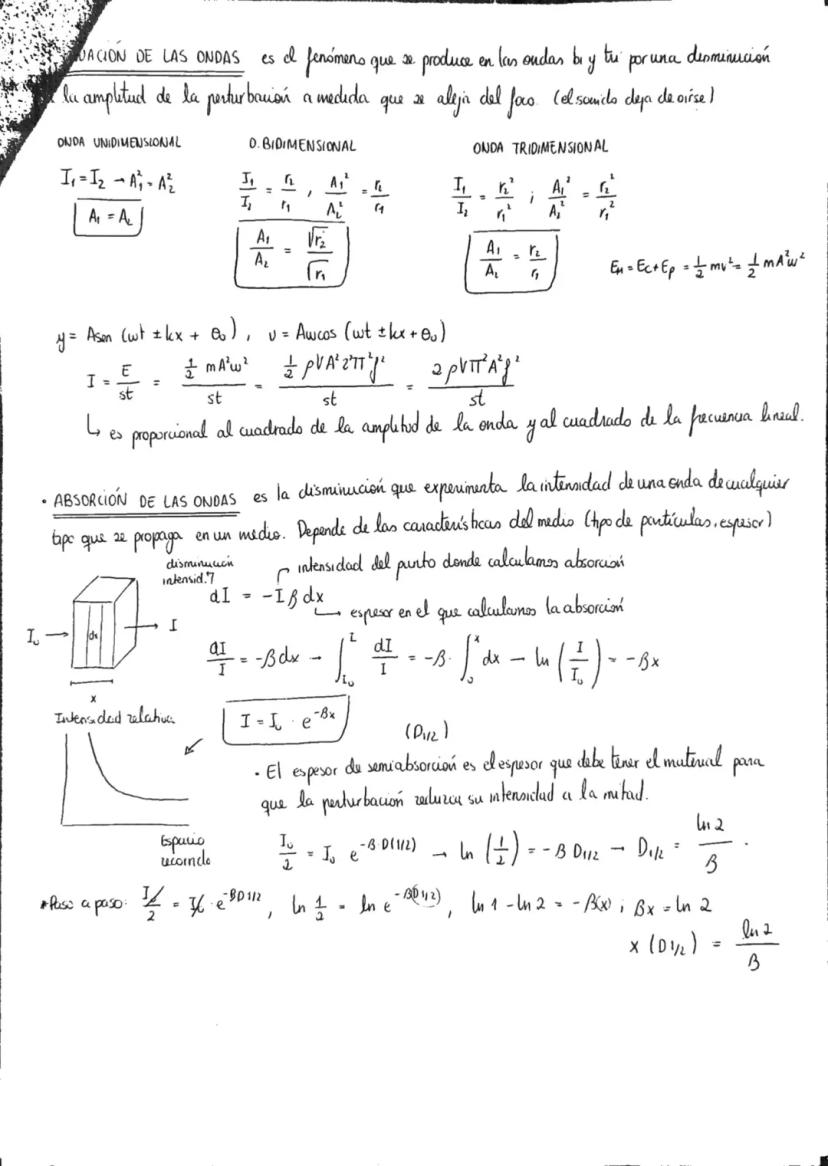 UACIÓN DE LAS ONDAS es el fenómeno que se produce en las ondas bi y tri por una disminución
la amplitud de la perturbación a medida que se aleja del foco. (el sonido deja de oírse)
ONDA UNIDIMENSIONAL O. BIDIMENSIONAL ONDA TRIDIMENSIONAL
I₁ = I₂ → A₁² = A₂² I₁/I₂ = r₂/r₁ , A₁²/A₂² = r₂/r₁ I₁/I₂ = r₂²/r₁² ; A₁²/A₂² = r₂²/r₁²
A₁ = A₂ A₁/A₂ = √r₂/√r₁ A₁/A₂ = r₂/r₁ EM = Ec + Ep = 1/2 mv² = 1/2 mA²w²
y = Asen (wt ± kx + θ₀) , v = Awcos (wt ± kx + θ₀)
I = E/st = 1/2 mA²w²/st = 1/2 ρVA²2²π²f²/st = 2ρVπ²A²f²/st
↳ es proporcional al cuadrado de la amplitud de la onda y al cuadrado de la frecuencia lineal.
· ABSORCIÓN DE LAS ONDAS es la disminución que experimenta la intensidad de una onda de cualquier
tipo que se propaga en un medio. Depende de las características del medio (tipo de partículas, espesor)
disminución
intensid.
intensidad del punto donde calculamos absorción
dI = -Iβdx
espesor en el que calculamos la absorción
I₀ → dx → I
x
dI/I = -βdx → ∫_I₀^I dI/I = -β · ∫₀^x dx → ln (I/I₀) = -βx
Intensidad relativa
I = I₀ · e^-βx
(D1/2)
· El espesor de semiabsorción es el espesor que debe tener el material para
que la perturbación reduzca su intensidad a la mitad.
Espacio
recorrido
I₀/2 = I₀ e^-β·D(1/2) → ln (1/2) = -β D1/2 → D1/2 = ln 2/β .
*Paso a paso: I₀/2 = I₀ · e^-βD1/2 , ln 1/2 = ln e^-β(D1/2) , ln 1 - ln 2 = -β(x) ; βx = ln 2
x (D1/2) = ln 2/β